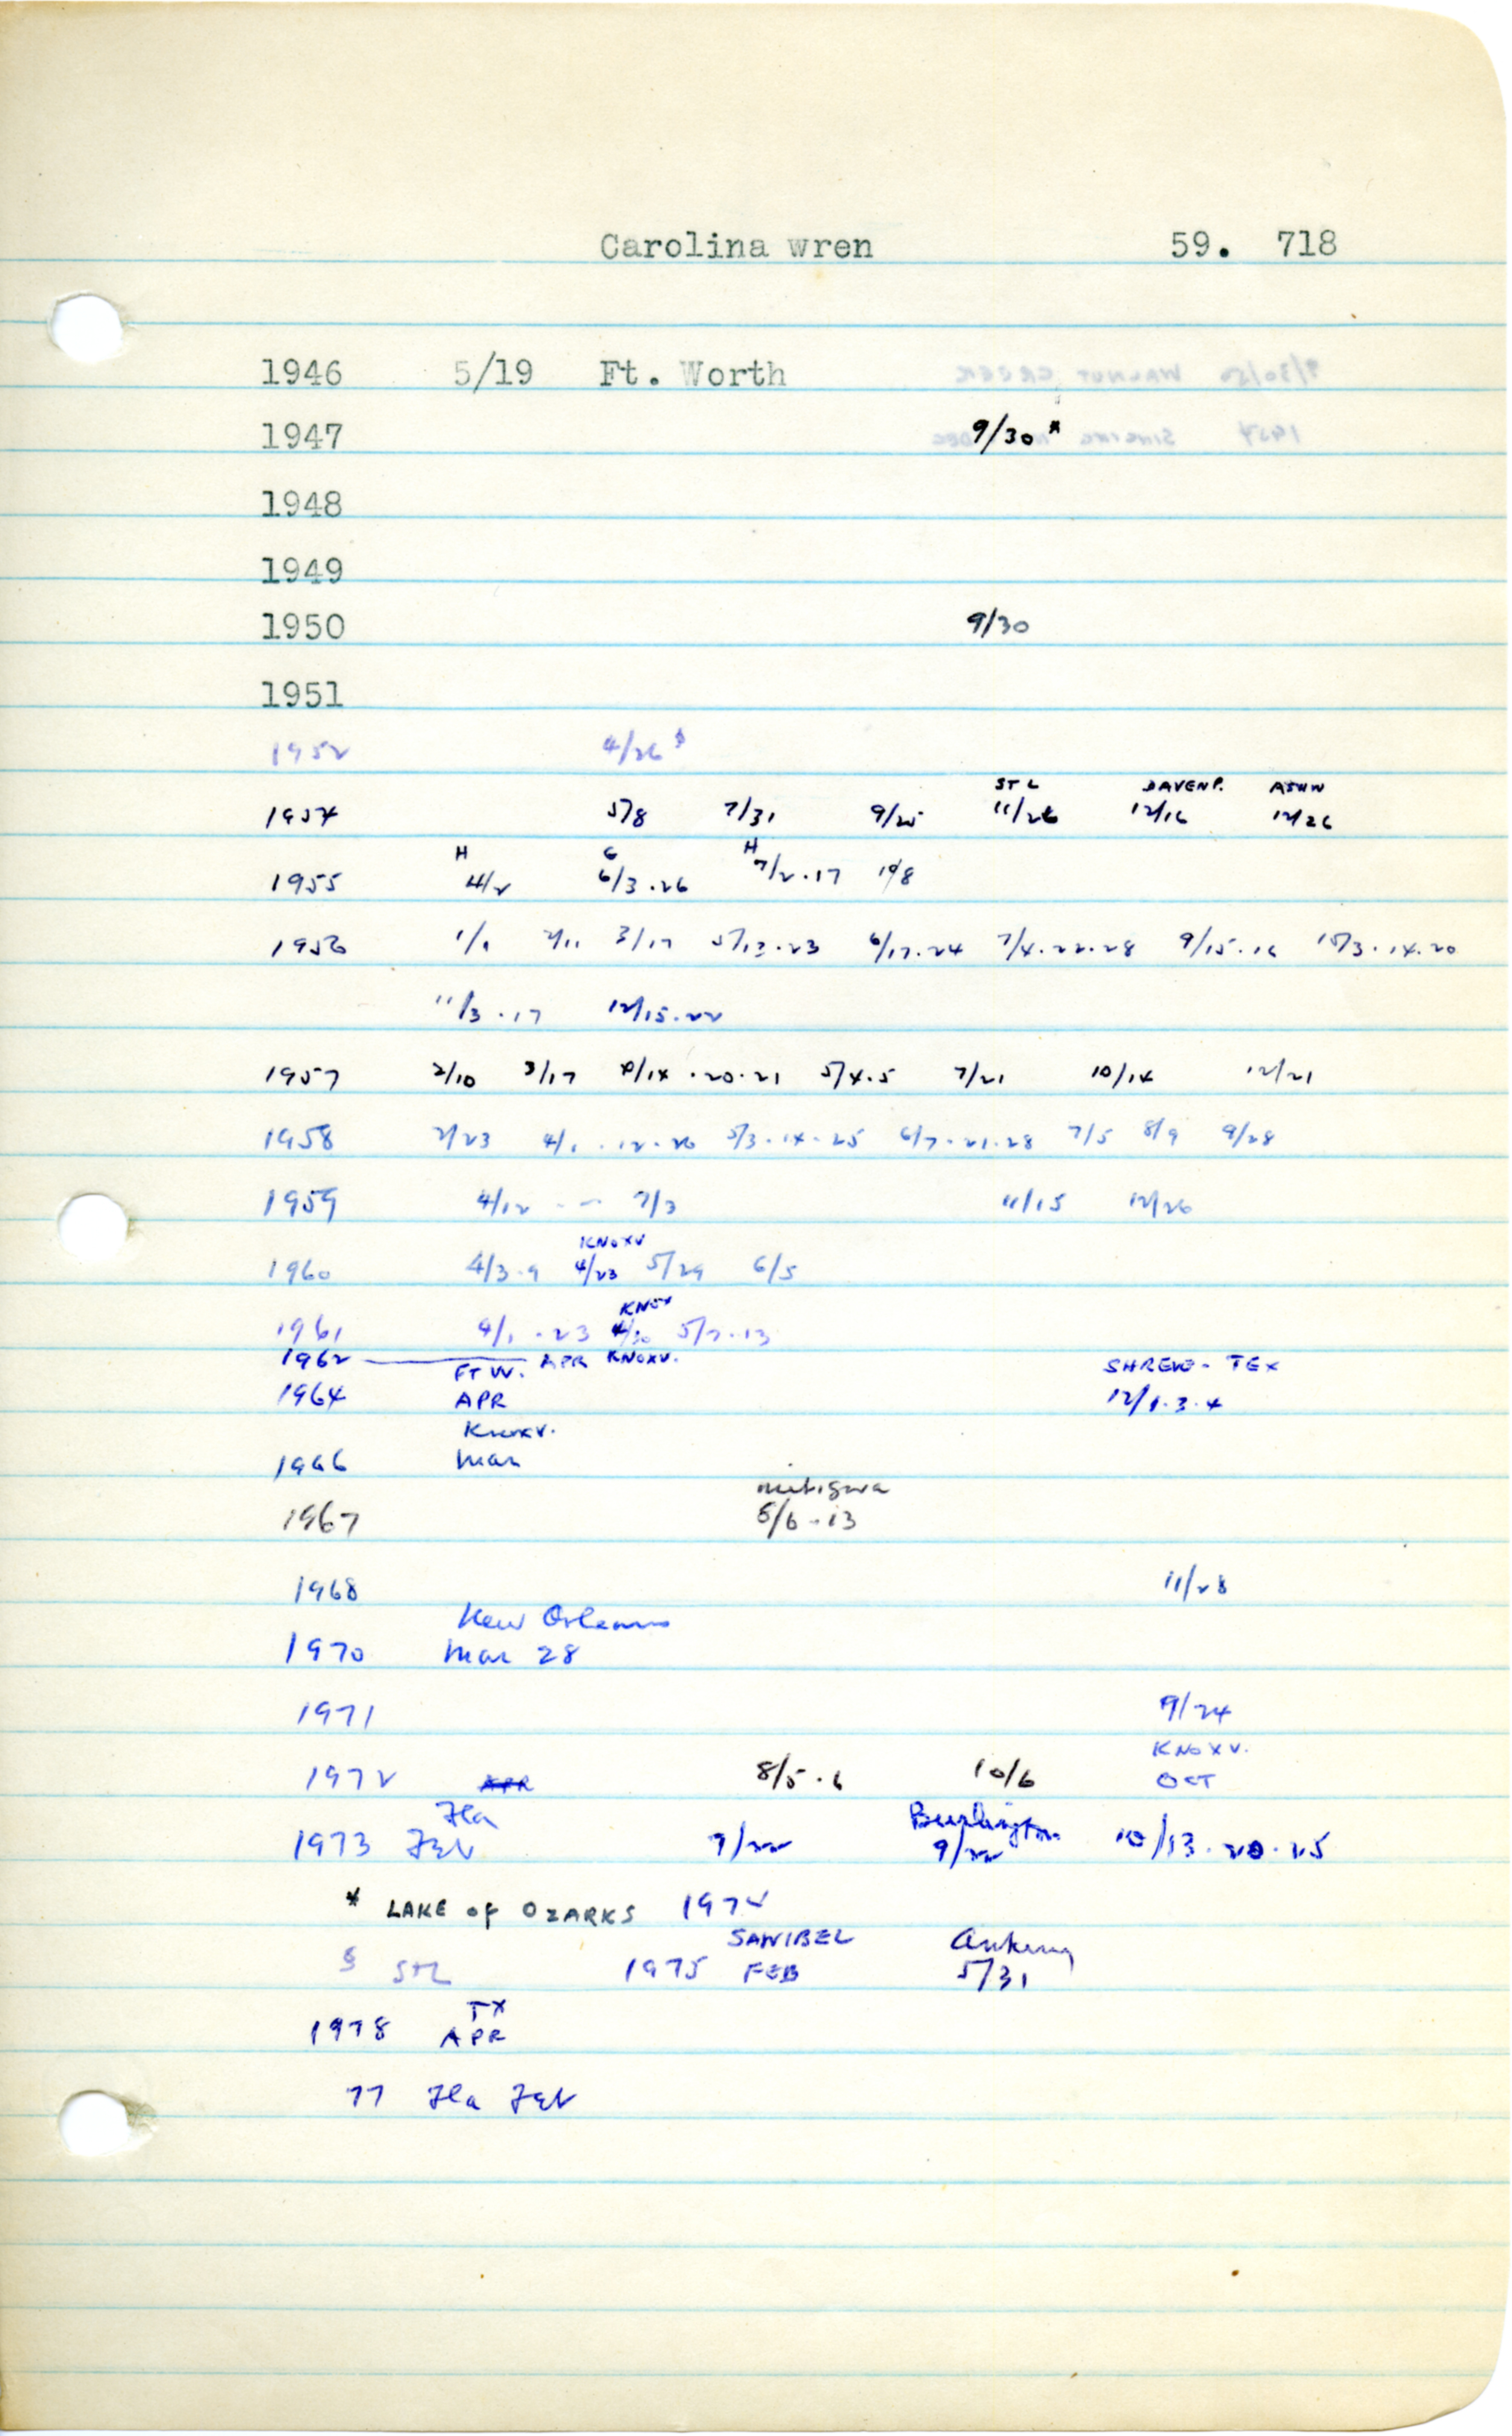 Carolina wren 59. 718
1946 5/19 Ft. Worth
1947 9/30 *
1948
1949
1950 9/30
1951
1952 4/26 §
STL DAVENP. ASHW
1954 5/8 7/31 9/25 11/26 12/16 12/26
H G H
1955 4/2 6/3.26 7/2.17 10/8
1956 1/1 2/11 3/17 5/12.23 6/17.24 7/4.22.28 9/15.16 10/3.14.20
11/3.17 12/15.22
1957 2/10 3/17 4/14.20.21 5/4.5 7/21 10/14 12/21
1958 2/23 4/1.12.20 5/3.14.25 6/7.21.28 7/5 8/9 9/28
1959 4/12 - - 7/3 11/15 12/26
KNOXV
1960 4/3.9 4/23 5/29 6/5
KNOX
1961 4/1.23 4/30 5/7.13
1962 — APR KNOXV.
FT W. SHREV - TEX
1964 APR 12/1.3.4
Knoxv.
1966 Mar
1967 5/6-13
1968 11/28
New Orleans
1970 Mar 28
1971 9/24
KNOXV.
1972 APR 8/5.6 10/6 OCT
Fla Burlington
1973 Feb 7/22 9/22 10/13.20.25
* LAKE of OZARKS 1974
SANIBEL Ankeny
§ StL 1975 FEB 5/31
TX
1978 APR
77 Fla Feb